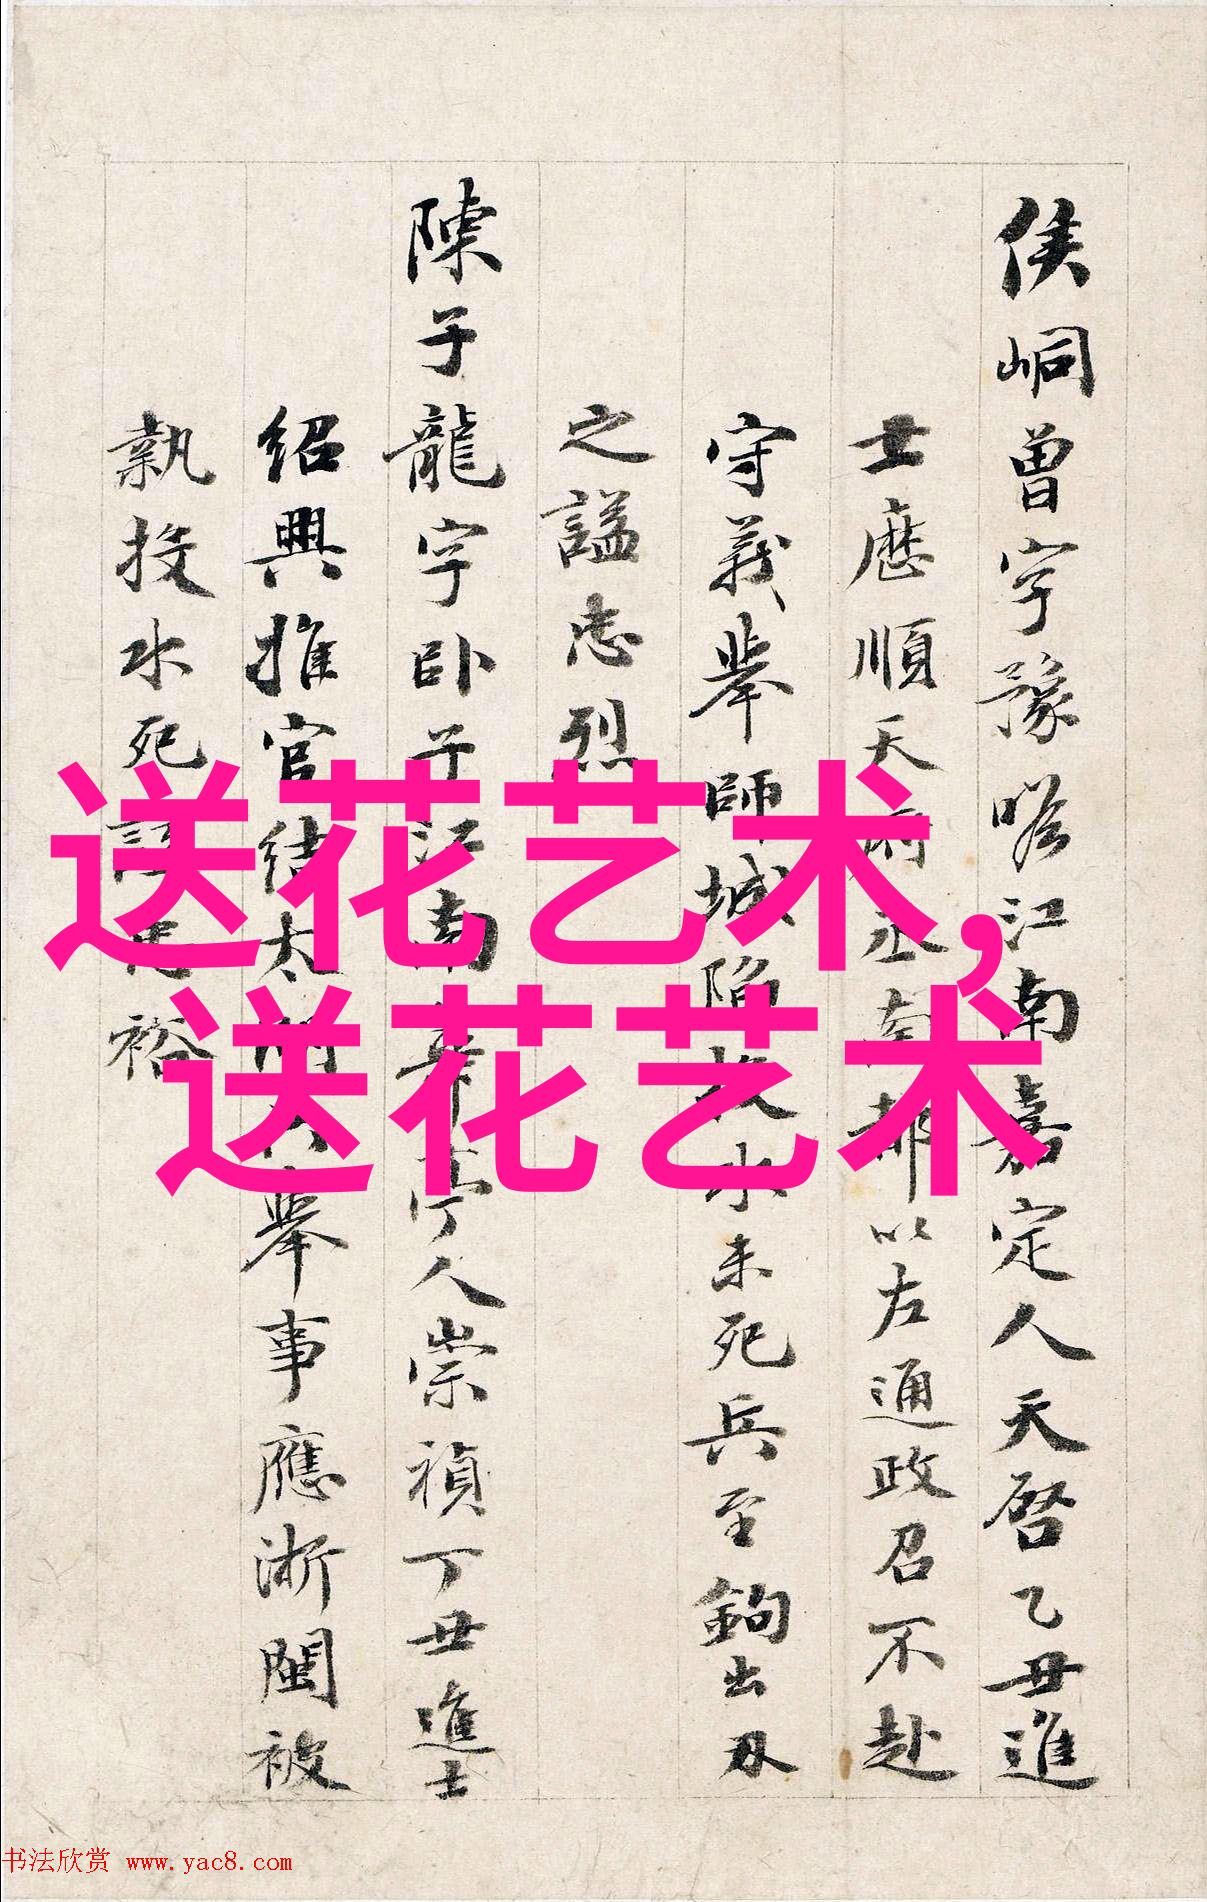 侯峒曾字豫瞻江南嘉定人天啓乙丑進
士歷順天府丞南都以左通政召不赴
守義舉師城陷投水未死兵至鉤出刃
之謚忠烈
陳子龍字卧子江南華亭人崇禎丁丑進士
紹興推官結太湖兵舉事應浙閩被
執投水死謚忠裕
送花艺术,
送花艺术
书法欣赏 www.yac8.com